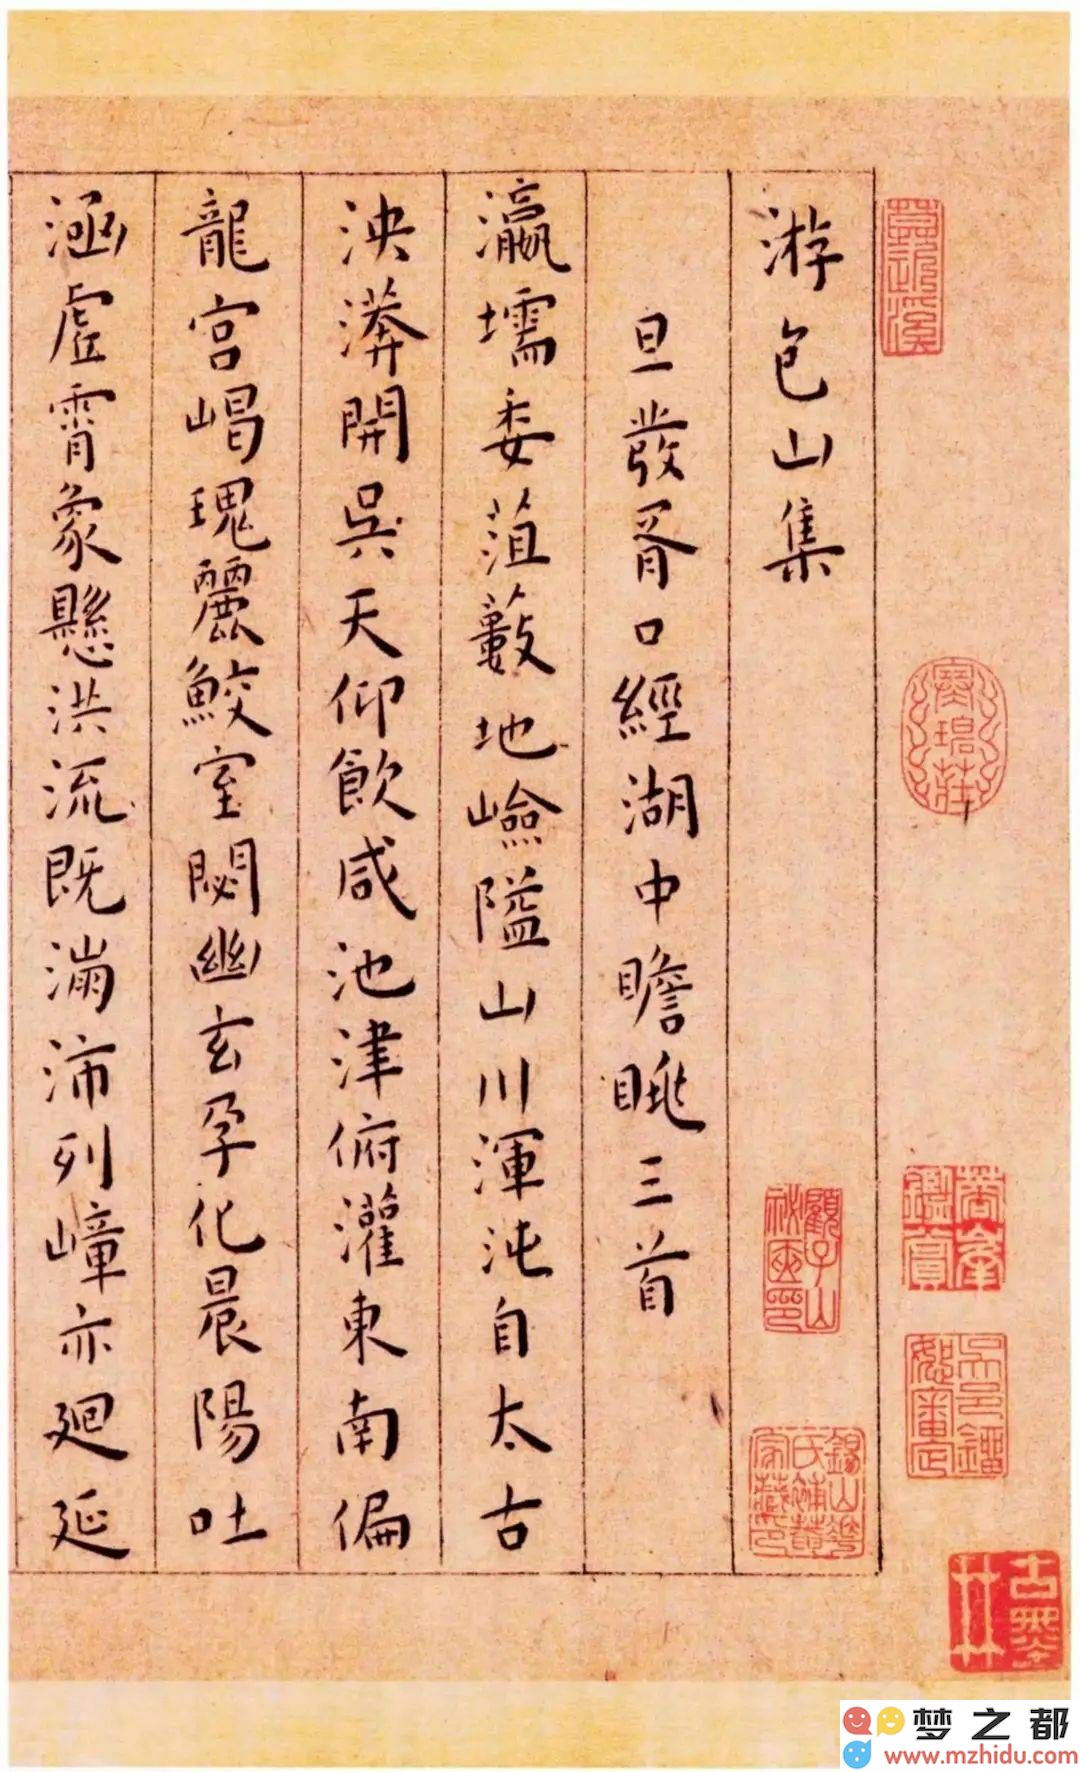 游包山集
旦發胥口經湖中瞻眺三首
瀛壖委菹藪地嶮隘山川渾沌自太古
泱漭開吳天仰飲咸池津俯灌東南偏
龍宮嵑瑰麗鮫室閟幽玄孕化晨陽吐
涵虛霄象懸洪流既滿沛列嶂亦廻延
顧子山秘匧印
寒碧莊
古無
梦之都
www.mzhidu.com